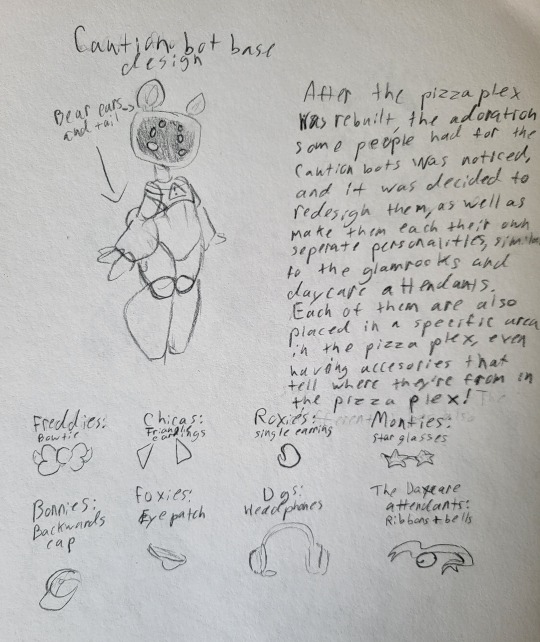 Caution bot base
design
Bear ears
and tail
After the pizza plex
was rebuilt, the adoration
some people had for the
Caution bots was noticed,
and it was decided to
redesign them, as well as
make them each their own
seperate personalities, similar
to the glamrocks and
daycare attendants.
Each of them are also
placed in a specific area
in the pizza plex, even
having accesories that
tell where they're from in
the pizza plex! The
Freddies:
Bowtie
Chicas:
Triangle
earrings
Roxies:
single earring
Monties:
star glasses
Bonnies:
Backwards
cap
Foxies:
Eye patch
DJs:
Headphones
The Daycare
attendants:
Ribbons + bells